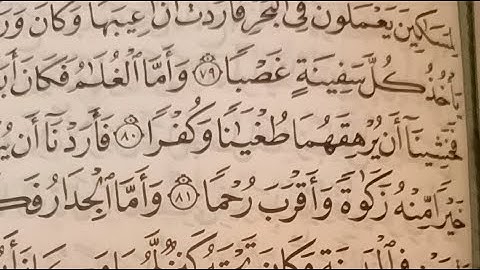 لِمَسَاكِينَ يَعْمَلُونَ فِي الْبَحْرِ فَأَرَدْتُ أَنْ أَعِيبَهَا وَكَانَ
يَأْخُذُ كُلَّ سَفِينَةٍ غَصْبًا ﴿٧٩﴾ وَأَمَّا الْغُلَامُ فَكَانَ
فَخَشِينَا أَنْ يُرْهِقَهُمَا طُغْيَانًا وَكُفْرًا ﴿٨٠﴾ فَأَرَدْنَا أَنْ
خَيْرًا مِنْهُ زَكَوٰةً وَأَقْرَبَ رُحْمًا ﴿٨١﴾ وَأَمَّا الْجِدَارُ
وَكَانَ تَحْتَهُ كَنْزٌ